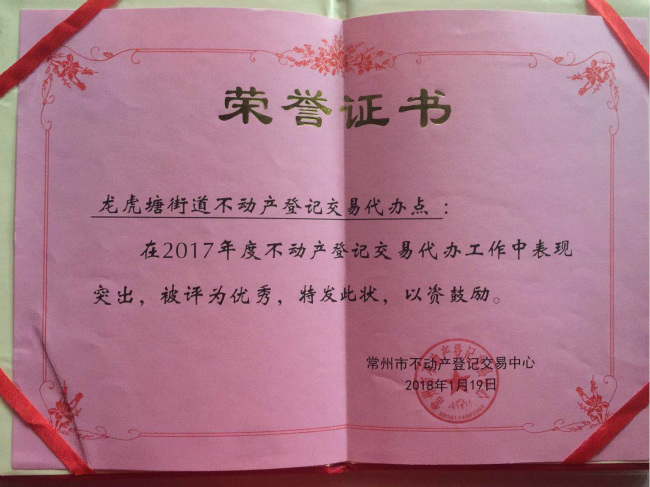 荣誉证书
龙虎塘街道不动产登记交易代办点：
在2017年度不动产登记交易代办工作中表现
突出，被评为优秀，特发此状，以资鼓励。
常州市不动产登记交易中心
2018年1月19日